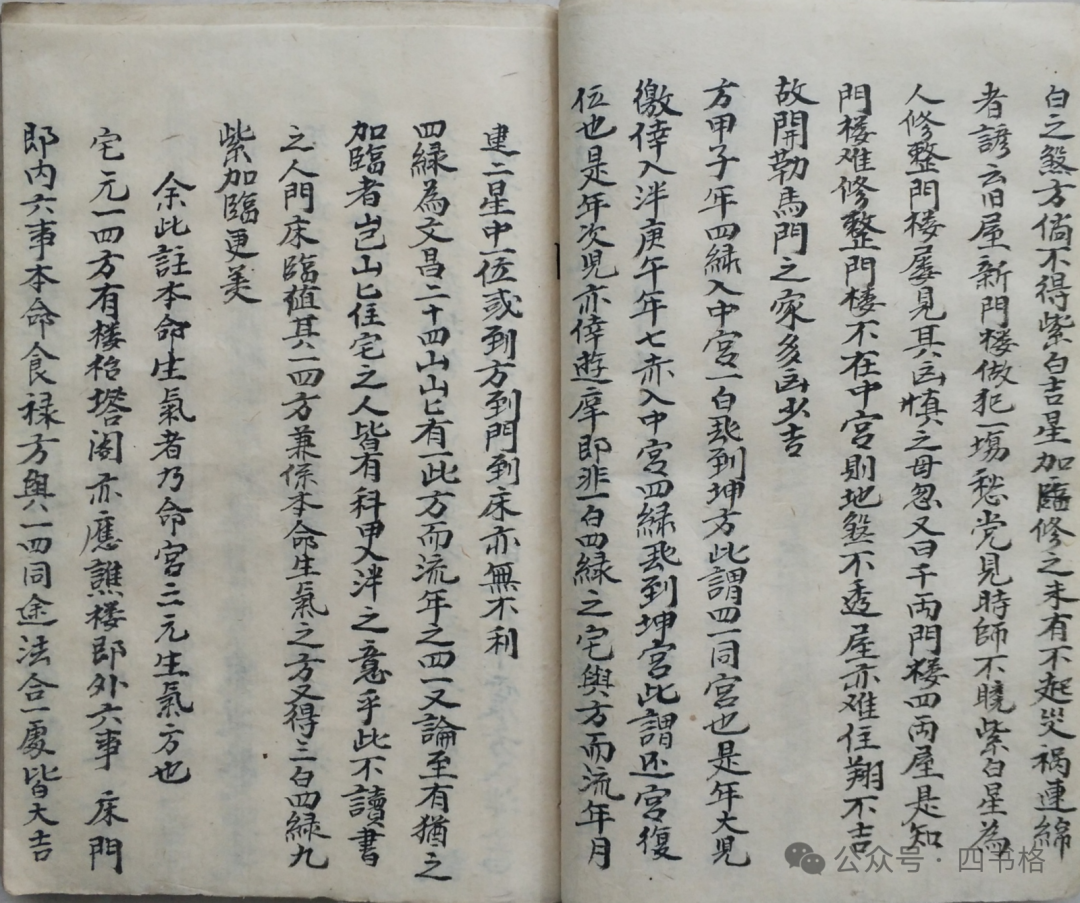 白之煞方倘不得紫白吉星加臨修之未有不起災禍連綿
者諺云旧屋新門楼做犯一塲愁党見時師不曉紫白星為
人修整門楼屡見其凶慎之毋忽又曰千両門楼四両屋是知
門楼难修整門楼不在中宮則地煞不透屋亦难住翔不吉
故開勒馬門之家多凶少吉
方甲子年四緑入中宮一白飛到坤方此謂四一同宮也是年大児
徼倖入泮庚午年七赤入中宮四緑飛到坤宮此謂还宮復
位也是年次児亦倖遊庠即非一白四緑之宅與方而流年月
建二星中一位或到方到門到床亦無不利
四緑為文昌二十四山山匕有一此方而流年之四一又論至有猶之
加臨者岂山匕住宅之人皆有科甲入泮之意乎此不讀書
之人門床臨值其一四方兼係本命生氣之方又得三白四緑九
紫加臨更美
余此註本命生氣者乃命宮三元生氣方也
宅元一四方有楼枱塔阁亦應譙楼即外六事 床門
即内六事本命食禄方與一四同途法合一處皆大吉
公众号·四书格